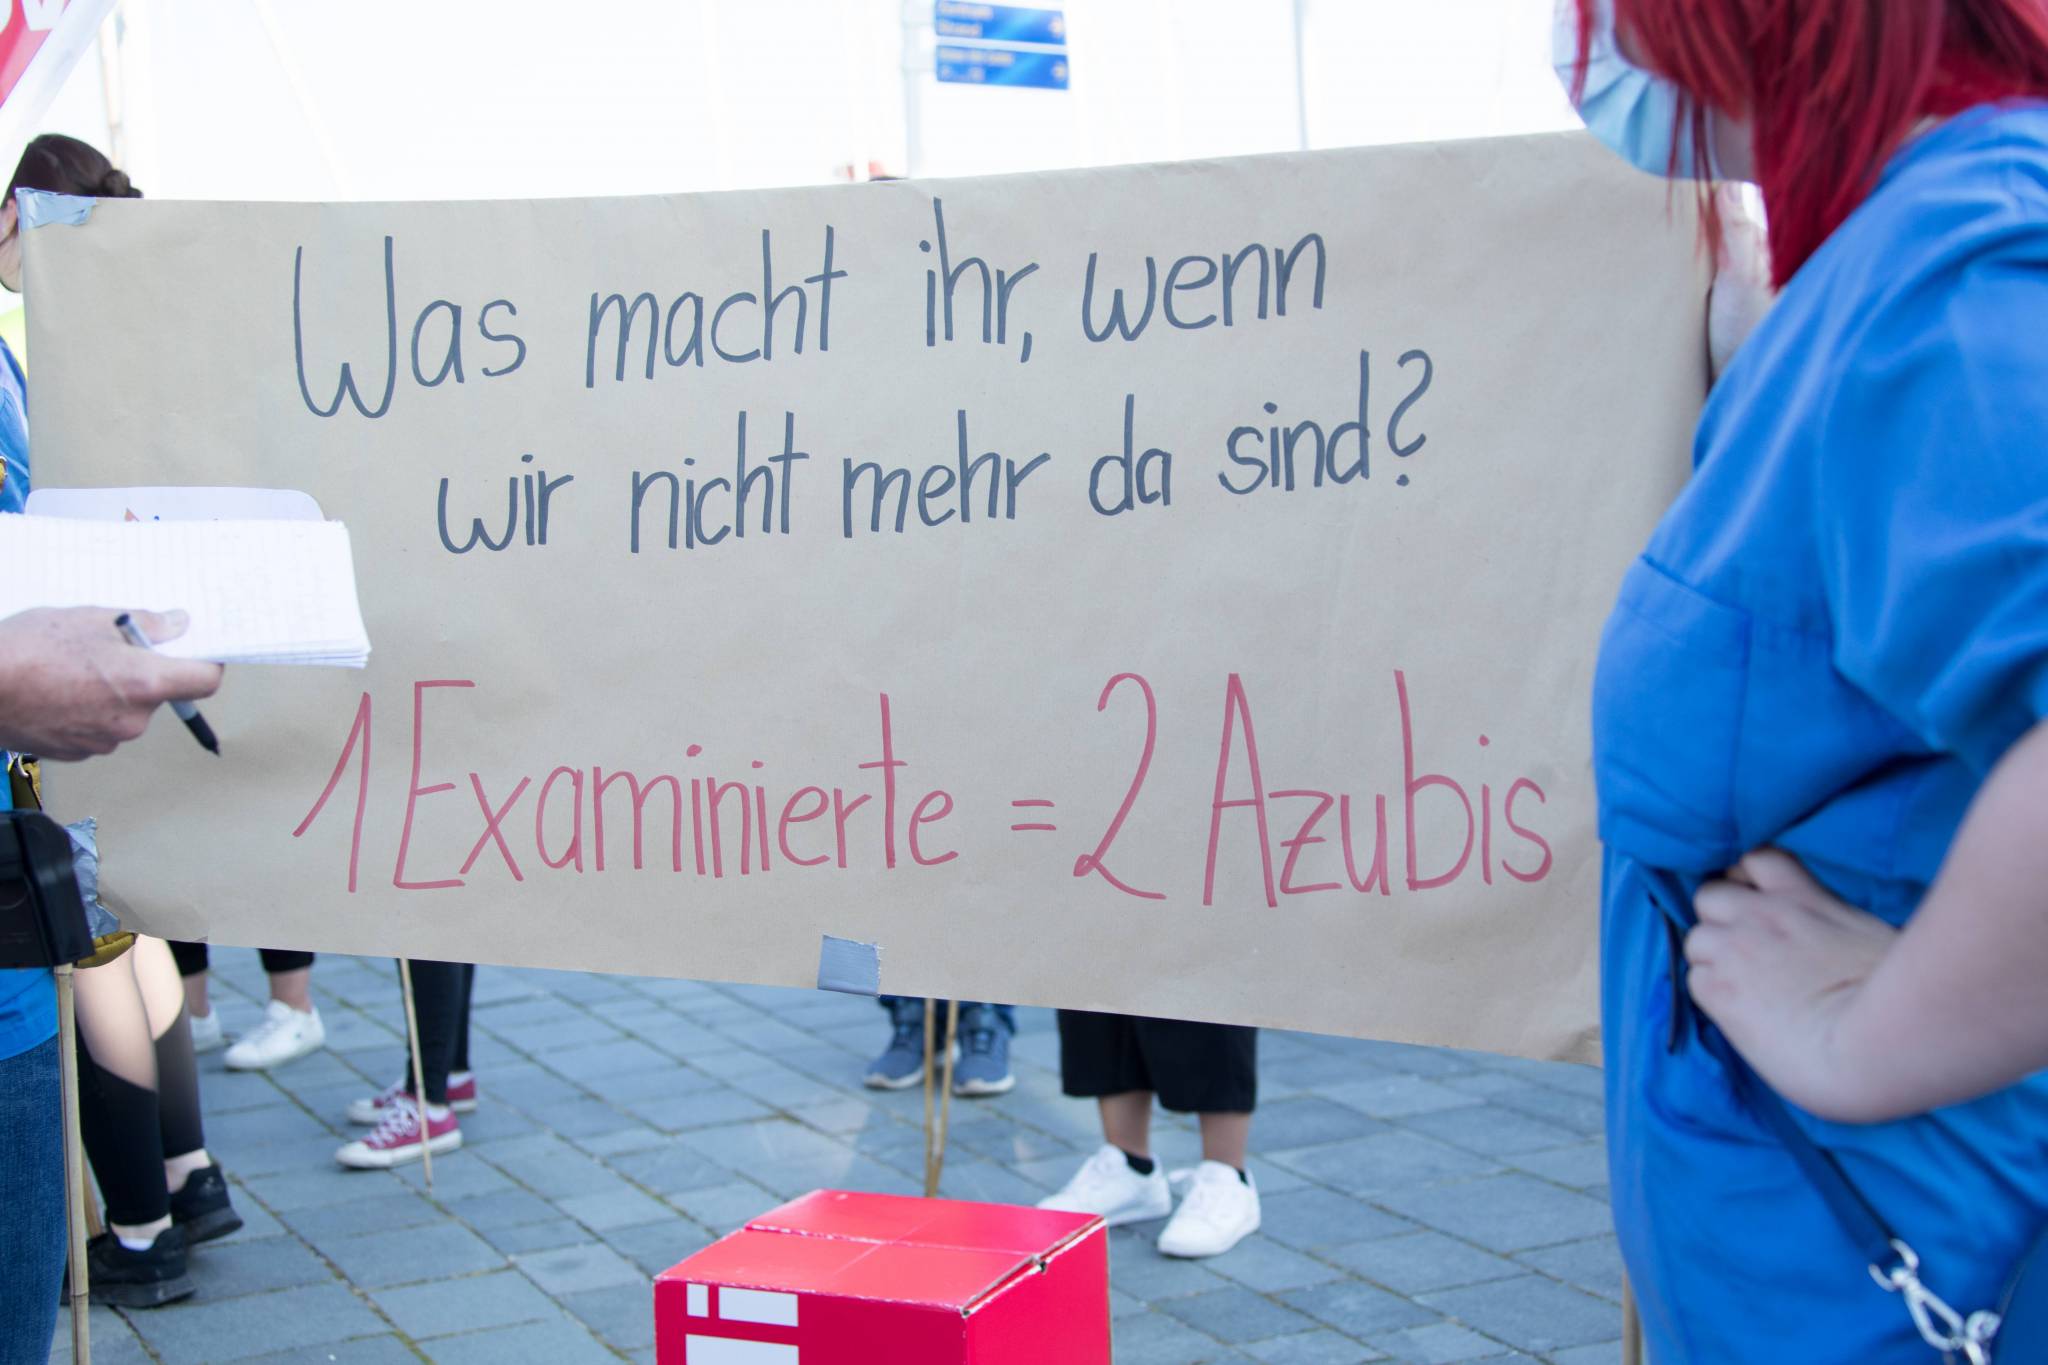 Was macht ihr, wenn
wir nicht mehr da sind?
1 Examinierte = 2 Azubis